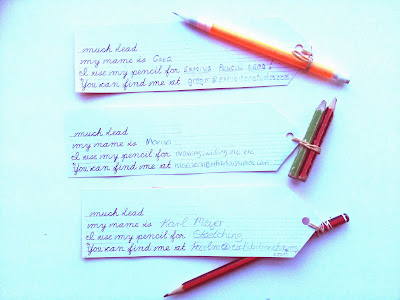 much Lead
my name is GREG
I use my pencil for
You can find me at
much Lead
my name is
I use my pencil for drawing, writing etc etc
You can find me at
much Lead
my name is Karl Meyer
I use my pencil for Sketching
You can find me at